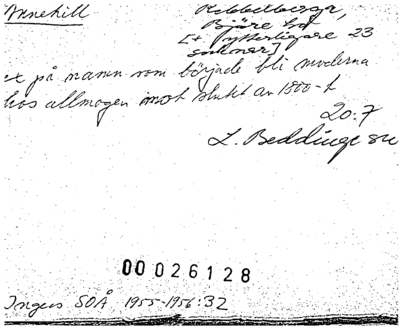 Annehill
Hebbelberga,
Bjäre hd
[+ ytterligare 23
socknar]
et på namn som började bli moderna
hos allmogen imot slutet av 1800-t
20:7
L. Beddinge sn
00 026128
Ingers SOÅ 1955-1956:32